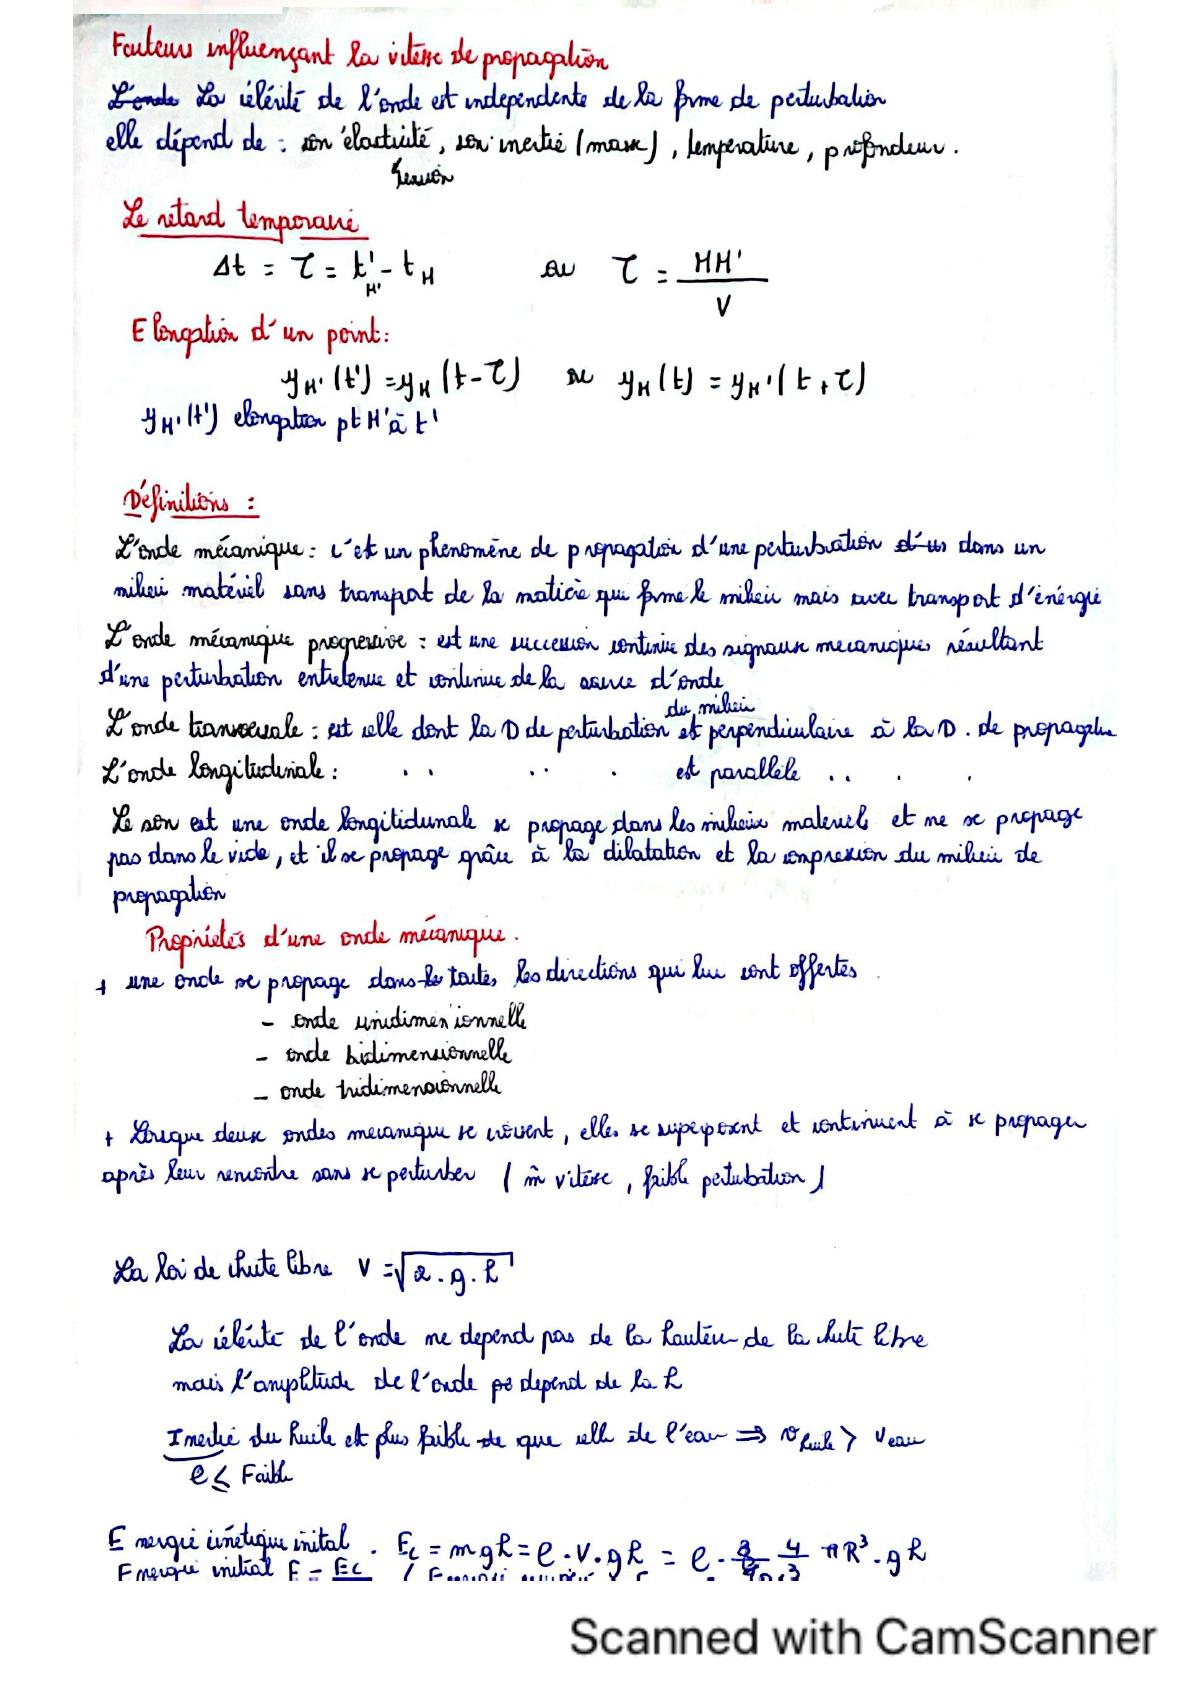 Facteurs influençant la vitesse de propagation
L'onde La célérité de l'onde est independente de la forme de perturbation
elle dépend de : son élasticité, son inertie (masse), température, profondeur.
tension
Le retard temporaire
Δt = τ = t'H' - tH ou τ = MM' / V
Elongation d'un point:
yM'(t') = yM (t-τ) ou yM(t) = yM'(t+τ)
yM'(t') elongation pt M' à t'
Définitions :
L'onde mécanique : c'et un phenomène de propagation d'une perturbation d'us dans un
milieu matériel sans transport de la matière qui forme le milieu mais avec transport d'énérgie
L'onde mécanique progressive : est une succession continue des signaux mecaniques résultant
d'une perturbation entretenue et continue de la source d'onde
du milieu
L'onde transversale : est celle dont la D de perturbation et perpendiculaire à la D. de propagation
L'onde longitudinale : .. .. . est parallèle .. . .
Le son est une onde longitidunale se propage dans les milieux materiels et ne se propage
pas dans le vide, et il se propage grâce à la dilatation et la compression du milieu de
propagation
Propriétés d'une onde mécanique.
+ une onde se propage dans les toutes les directions qui lui sont offertes
- onde unidimensionnelle
- onde bidimensionnelle
- onde tridimensionnelle
+ Lorsque deux ondes mecanique se croisent, elles se superposent et continuent à se propager
après leur rencontre sans se perturber (m̂ vitesse, faible perturbation)
La loi de chute libre V = √2.g.h
La célérité de l'onde ne depend pas de la hauteur de la chute libre
mais l'amplitude de l'onde depend de la h
Inertie du huile et plus faible de que celle de l'eau ⇒ v huile > v eau
ρ ≤ Faible
Energie cinétique inital . Ec = mgh = ρ.V.gh = ρ. 4/3 πR³.gh
Energie initial E = Ec
Scanned with CamScanner